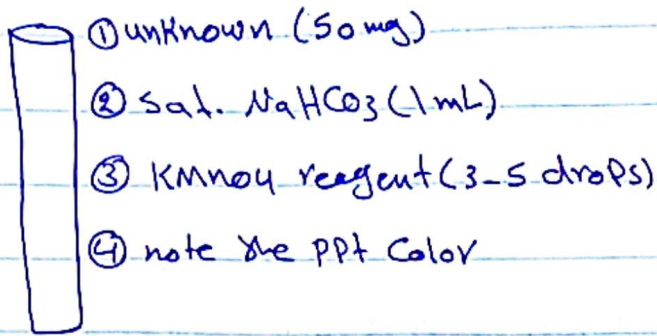 ① unknown (50 mg)
② Sat. NaHCO3 (1 mL)
③ KMnO4 reagent (3-5 drops)
④ note the PPt Color